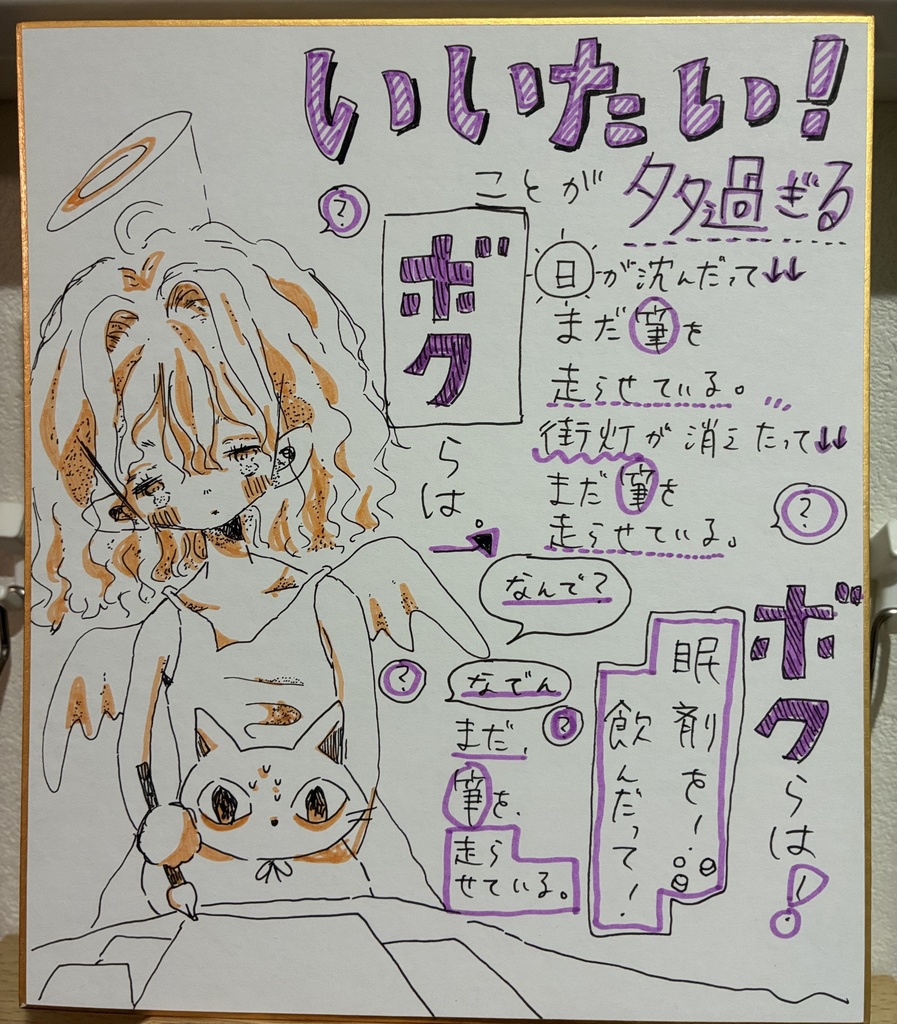 いいたい!
ことが多過ぎる
?
ボクらは。
日が沈んだって↓↓
まだ筆を
走らせている。
街灯が消えたって↓↓
まだ筆を
走らせている。
?
なんで?
ボクらは!
眠剤を!
飲んだって!
?
なでん
?
まだ、
筆を、
走ら
せている。